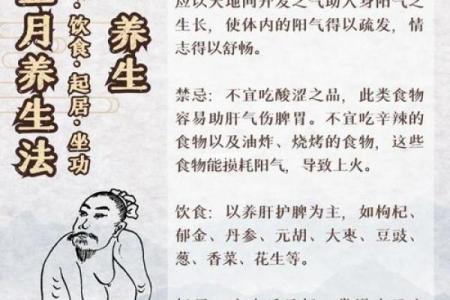 养生
月养生法
饮食·起居·坐功
应以天地间升发之气助人身阳气之
生长，使体内的阳气得以疏发，情
志得以舒畅。
禁忌：不宜吃酸涩之品，此类食物
容易助肝气伤脾胃。不宜吃辛辣的
食物以及油炸、烧烤的食物，这些
食物能损耗阳气，导致上火。
饮食：以养肝护脾为主，如枸杞、
郁金、丹参、元胡、大枣、豆豉、
葱、香菜、花生等。